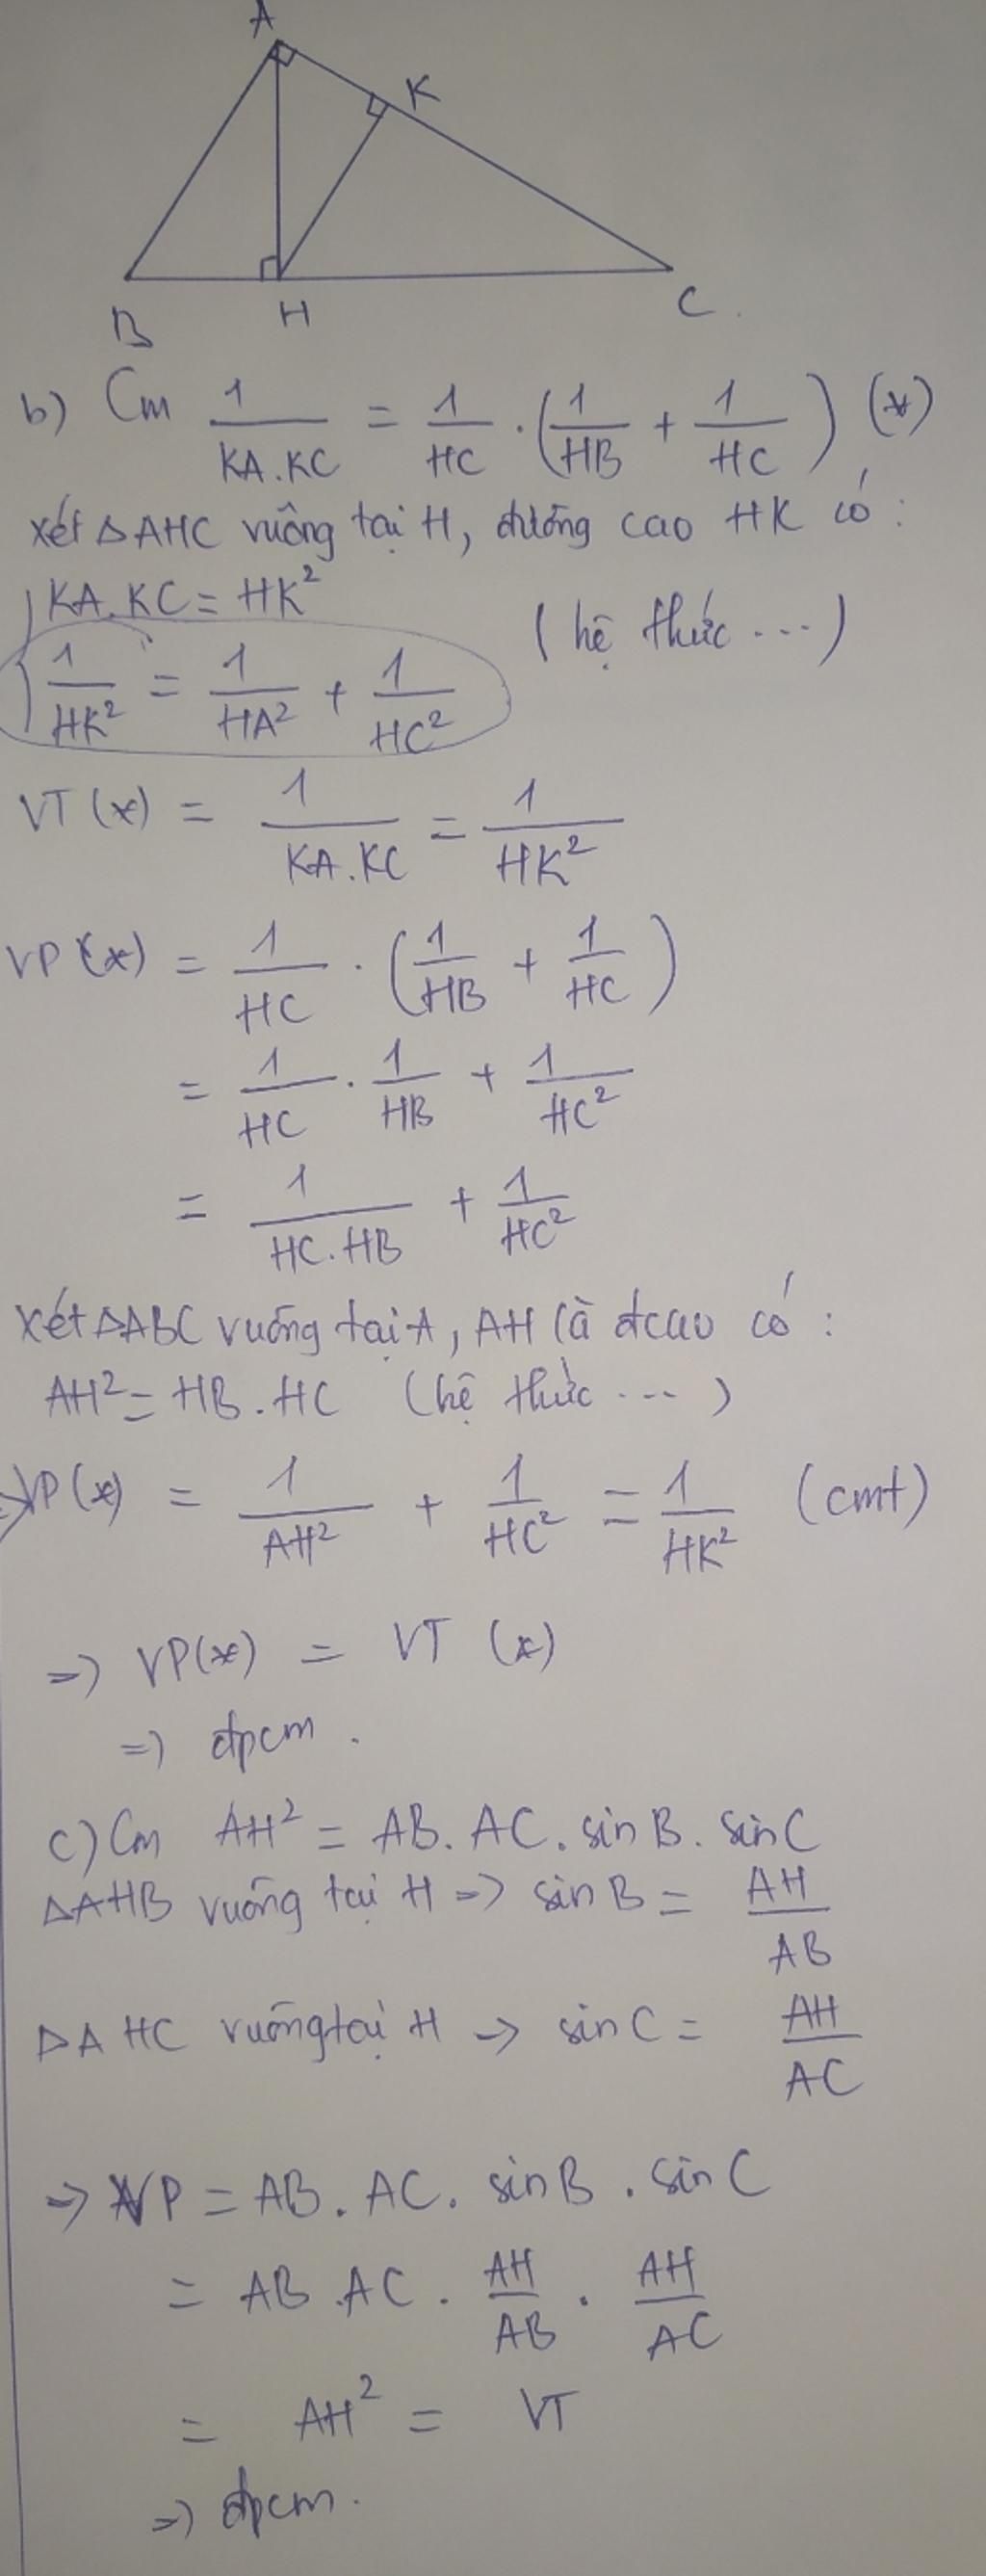 A
K
B
H
C.
b) Cm 1/(KA.KC) = 1/HC . (1/HB + 1/HC) (*)
Xét ΔAHC vuông tại H, đường cao HK có:
KA.KC = HK²
1/HK² = 1/HA² + 1/HC² (hệ thức ...)
VT(*) = 1/(KA.KC) = 1/HK²
VP(*) = 1/HC . (1/HB + 1/HC)
= 1/HC . 1/HB + 1/HC²
= 1/(HC.HB) + 1/HC²
Xét ΔABC vuông tại A, AH là đcao có:
AH² = HB.HC (hệ thức ...)
=> VP(*) = 1/AH² + 1/HC² = 1/HK² (cmt)
=> VP(*) = VT(*)
=> đpcm.
c) Cm AH² = AB.AC.sinB.sinC
ΔAHB vuông tại H => sinB = AH/AB
ΔAHC vuông tại H -> sinC = AH/AC
=> VP = AB.AC.sinB.sinC
= AB.AC . AH/AB . AH/AC
= AH² = VT
=> đpcm.